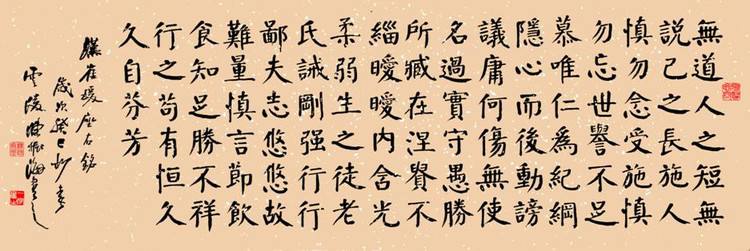 無道人之短無
說己之長施人
慎勿念受施慎
勿忘世譽不足
慕唯仁爲紀綱
隱心而後動謗
議庸何傷無使
名過實守愚勝
所臧在涅貴不
緇曖曖内含光
柔弱生之徒老
氏誡剛强行行
鄙夫志悠悠故
難量慎言節飲
食知足勝不祥
行之苟有恒久
久自芬芳
錄崔瑗座右銘
歲次癸巳
雲陵海書